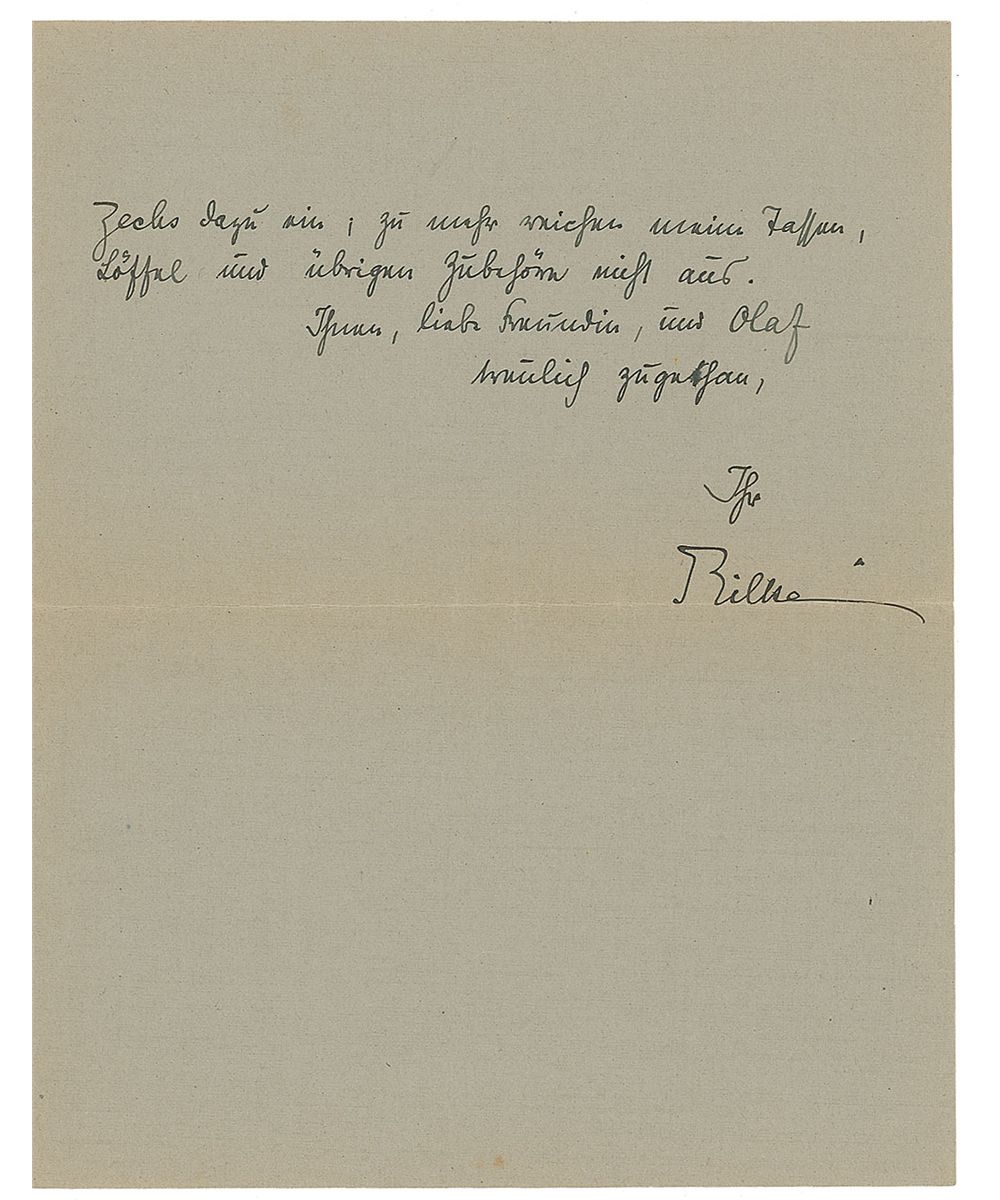 Zechs dazu ein; zu mehr reichen meine Tassen,
Löffel und übrigen Zubehöre nicht aus.
Ihnen, liebe Freundin, und Olaf
treulich zugethan,
Ihr
Rilke